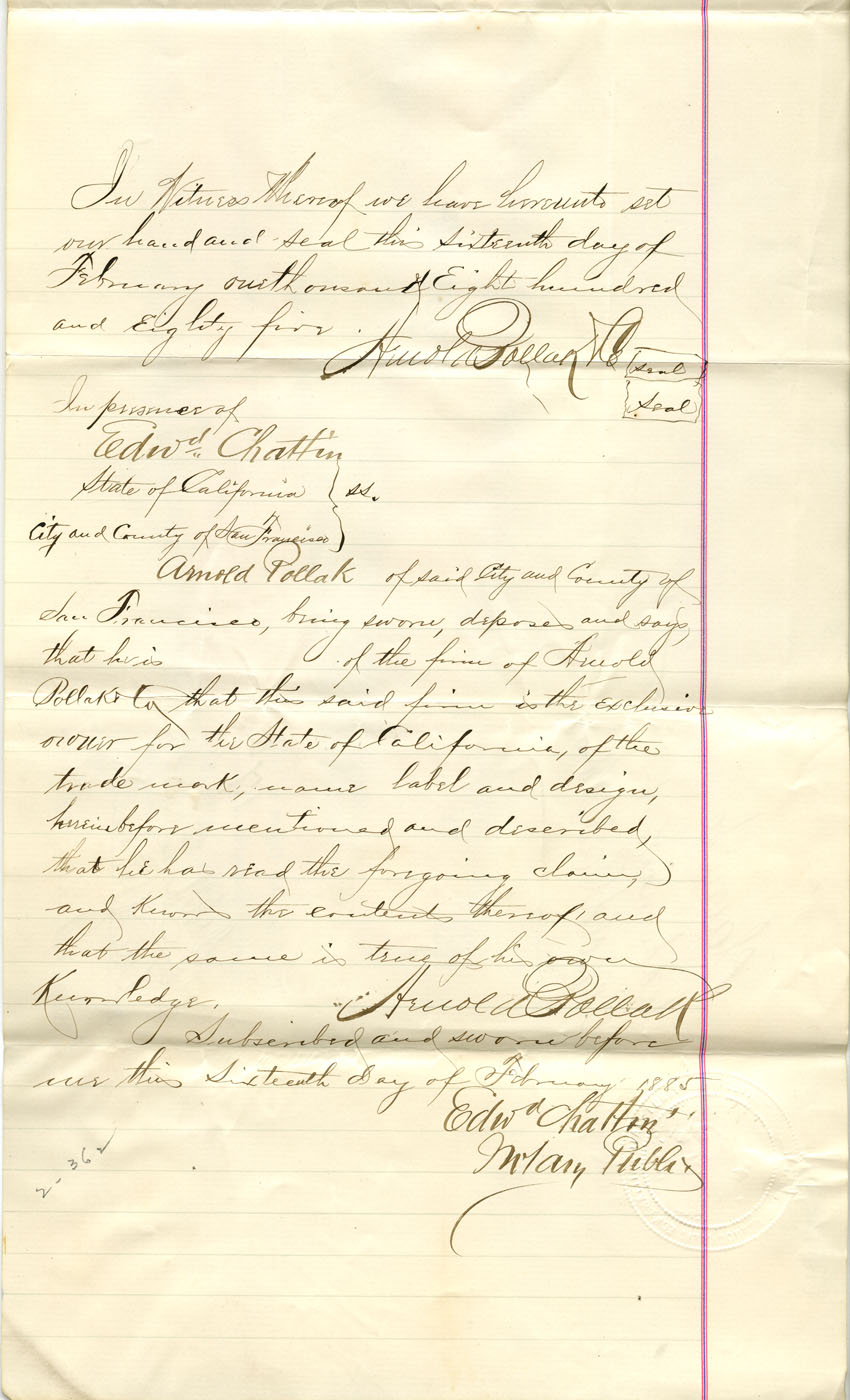 In Witness Whereof we have hereunto set
our hand and seal this sixteenth day of
February one thousand Eight hundred
and Eighty five.
Arnold Pollak & Co {seal}
{seal}
In presence of
Edwd. Chattin
State of California } ss.
City and County of San Francisco }
Arnold Pollak of said City and County of
San Francisco, being sworn, deposes and says,
that he is of the firm of Arnold
Pollak & Co that this said firm is the exclusive
owner for the State of California, of the
trade mark, name label and design,
hereinbefore mentioned and described,
that he has read the foregoing claim,
and knows the contents thereof, and
that the same is true of his own
Knowledge.
Arnold Pollak
Subscribed and sworn before
me this Sixteenth Day of February 1885
Edwd Chattin
Notary Public
2-362